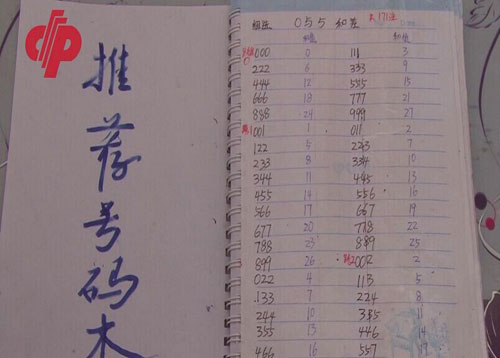 推
荐
号
码
0与5
000 0 111 3
222 6 333 9
444 12 555 15
666 18 777 21
888 24 999 27
001 1 011 2
122 5 223 7
233 8 334 10
344 11 445 13
455 14 556 16
566 17 667 19
677 20 778 22
788 23 889 25
899 26 002 2
022 4 113 5
133 7 224 8
244 10 335 11
355 13 446 14
466 16 557 17